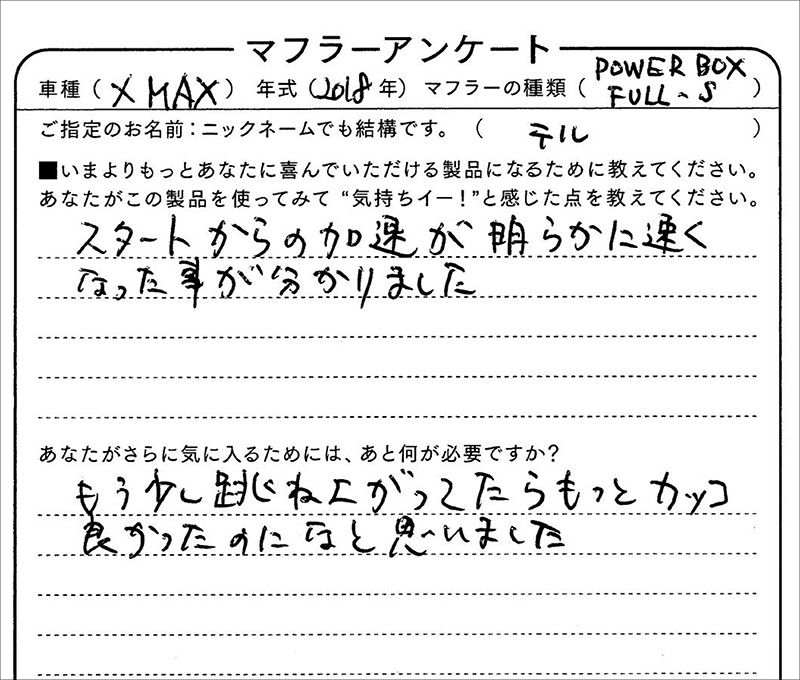 マフラーアンケート
車種（X MAX） 年式（2018年） マフラーの種類（POWER BOX FULL-S）
ご指定のお名前：ニックネームでも結構です。（ テル ）
■いまよりもっとあなたに喜んでいただける製品になるために教えてください。
あなたがこの製品を使ってみて“気持ちイー！”と感じた点を教えてください。
スタートからの加速が明らかに速く
なった事が分かりました
あなたがさらに気に入るためには、あと何が必要ですか？
もう少し跳ね上がってたらもっとカッコ
良かったのになと思いました